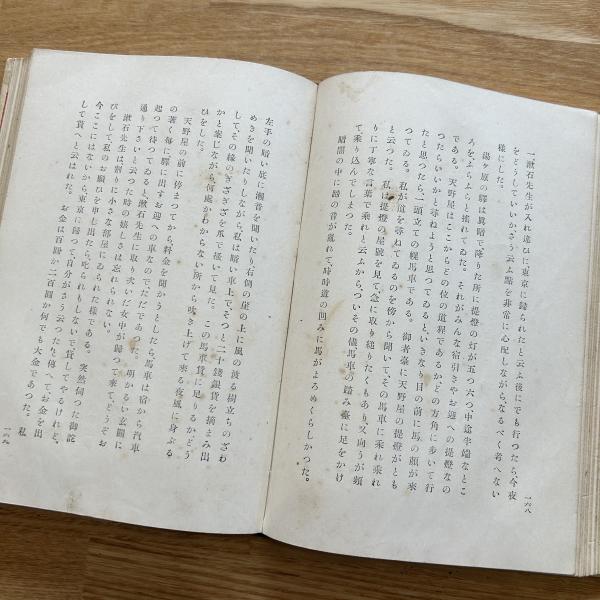 一漱石先生が入れ違ひに東京に歸られたと云ふ後にでも行つたら、今夜
をどうしていいかさう云ふ點を非常に心配しながら、なるべく考へない
樣にした。
湯ヶ原の驛は眞暗で降りた所に提燈の灯が五つ六つ中途半端なとこ
ろをふらふらと搖れてゐた。それがみんな宿引きやお迎への提燈なの
である。天野屋はここからどの位の道程であるかどの方角に歩いて行
つたらいいかと尋ねようと思つてゐると、いきなり目の前に馬の顏が來
たと思つたら、一頭立ての幌馬車である。御者臺に天野屋の提燈がとも
つてゐる。私が道を尋ねてゐるのを傍から聞いて、その馬車に乘れ乘れ
と云つた。私は提燈の屋號を見て、急に取り縋りたくもあり、又向うが頻
りに丁寧な言葉で乘れと云ふから、つい其の儘馬車の踏み臺に足をかけ
て乘り込んでしまつた。
暗闇の中に蹄の音が亂れて、時時道の凹みに馬がよろめくらしかつた。
一六八
左手の暗い底に潮音を聞いたり右側の崖の上に風の渡る樹立ちのざわ
めきを聞いたりしながら、私は暗い車上でそつと二十錢銀貨を摘まみ出
して、その緣のぎざぎざを爪で搔いて見た。この馬車賃に足りるかどう
かと案じながら、何處かわからない所から吹き上げて來る夜風に身ぶる
ひをした。
天野屋の前に停まつてから、拂金を聞かうとしたら、馬車は宿から汽車
の著く每に驛に出すお迎への車なので、ただであつた。明かるい玄關に
起つて待つてゐると、漱石先生に取り次いだ女中が歸つて來て、どうぞお
通り下さいと云つた時の嬉しさは忘れられない。
漱石先生は割りに小さな部屋にゐられた樣である。突然伺つた御詫
びをして私のお願ひを申し出たら、叱られもしないで、貸してやるけれど、
今ここにはないから、東京に歸つて自分がさう云つたと傳へて、お金を出
して貰へと云はれた。お金は百圓か二百圓か何でも大金であつた。私
一六九